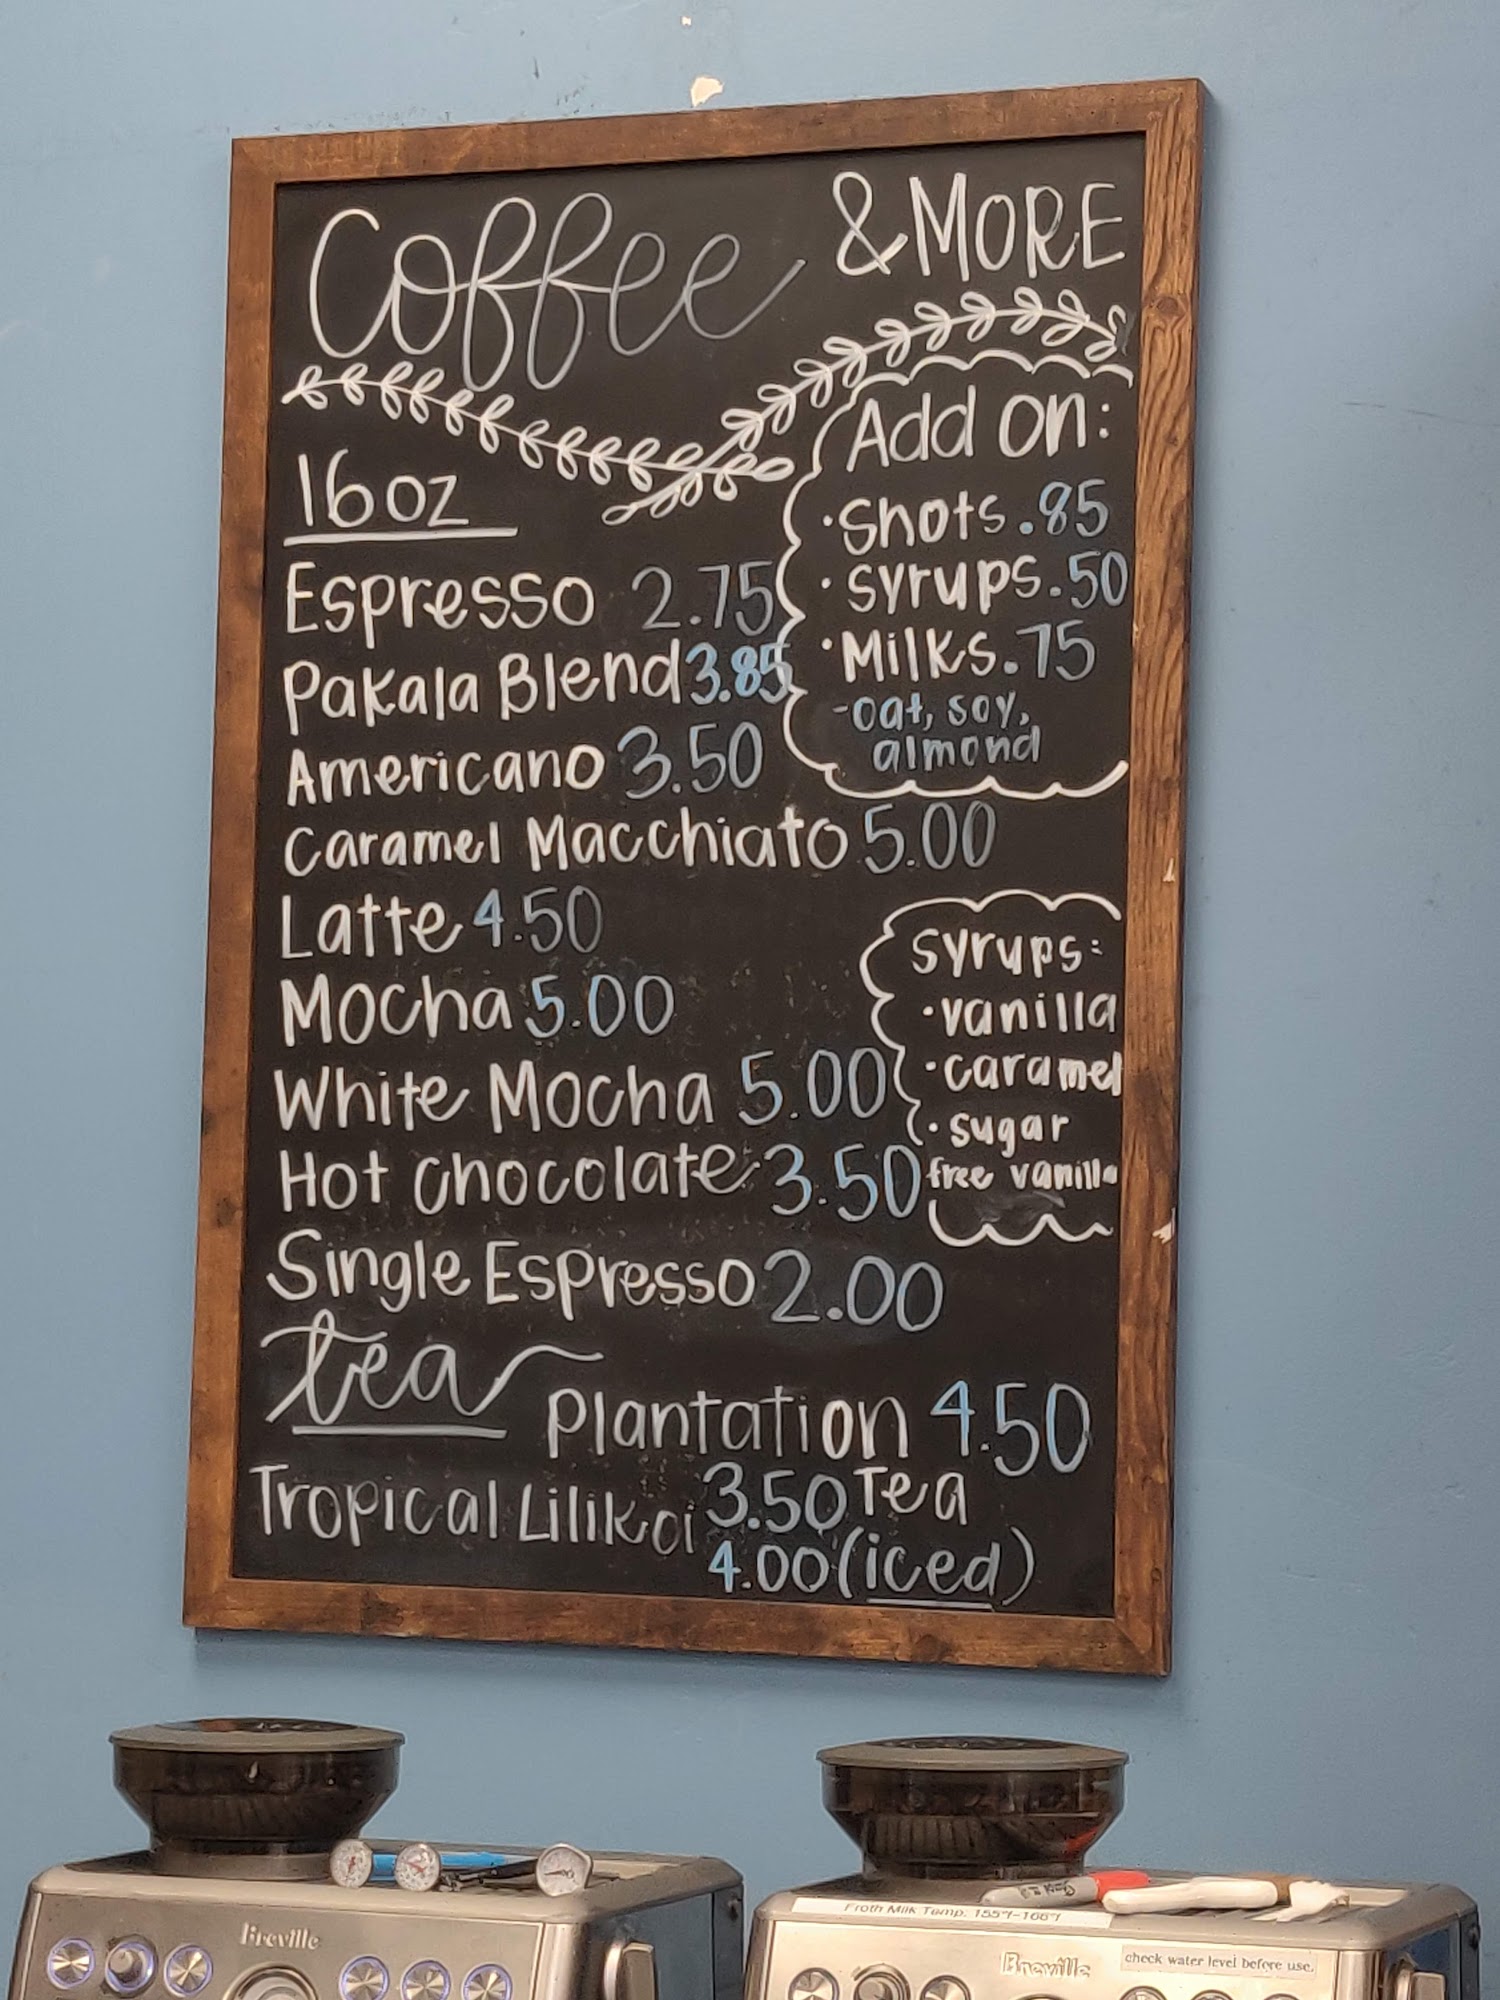 Coffee & MORE
16oz
Espresso 2.75
Pakala Blend 3.85
Americano 3.50
Caramel Macchiato 5.00
Latte 4.50
Mocha 5.00
White Mocha 5.00
Hot Chocolate 3.50
Single Espresso 2.00
Add on:
· Shots .85
· Syrups .50
· Milks .75
- oat, soy,
almond
Syrups:
· vanilla
· caramel
· sugar
free vanilla
tea
Plantation 4.50
Tropical Lilikoi 3.50 Tea
4.00 (iced)
Froth Milk Temp.
Breville
Breville
check water level before use.